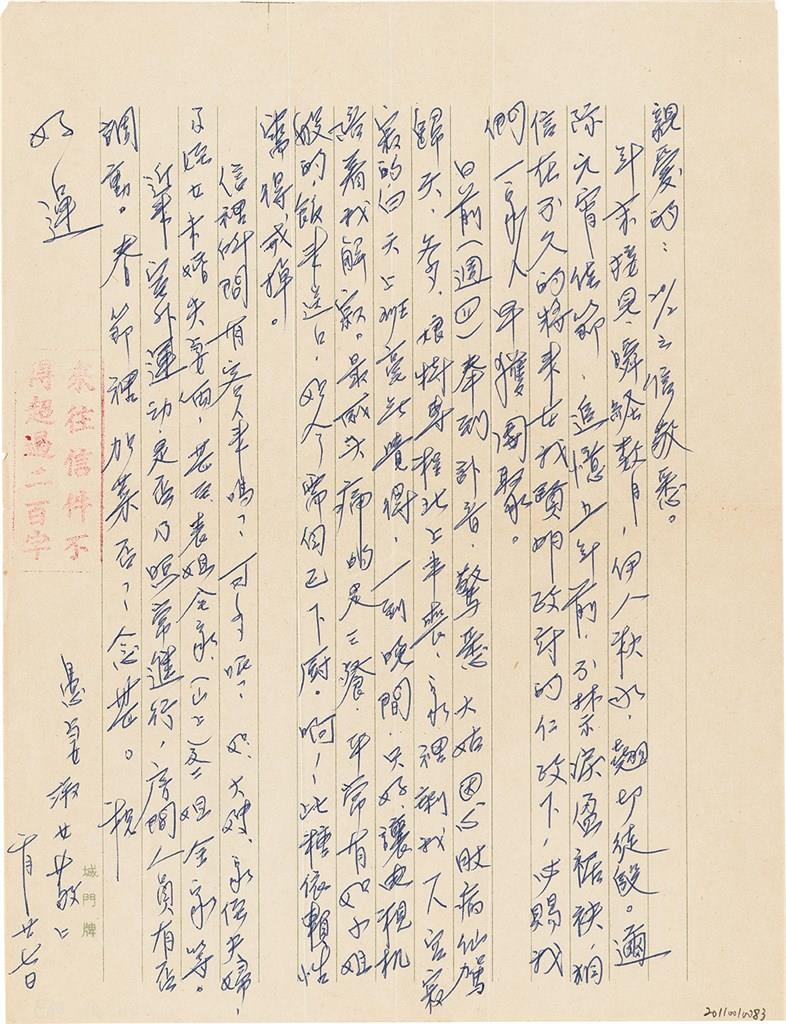 親愛的：20/2之信敬悉。
年末接見，瞬經數月，伊人秋水，翹切徒殷。適
際元宵佳節，追憶五年前，不禁淚盈裾袂，
信在不久的將來在我賢明政府的仁政下，必賜我
們一家人早獲團聚。
日前（週四）奉到訃音，驚悉 大姑因心臟病仙駕
歸天，爹、娘 專程北上奔喪，家裡剩我一人空寂
寂的，白天上班毫無覺得，一到晚間，只好讓電視机
陪着我解寂。最感頭痛的是三餐，平常有如小姐
般的，飯來送口，如今需自己下厨。啊！此種依賴性
需得戒掉。
信裡所問有客來嗎？可多呢？如大嫂、永信夫婦、
及姪女未婚夫妻倆，甚至表姐全家（山上）及二姐全家等。
近來室外運動是否乃照常進行，房間人員有否
調動。春節裡加菜否？念甚。祝
好運
愚妻淑女敬上
二月廿七日
來往信件不
得超過二百字
城門牌
20110010083